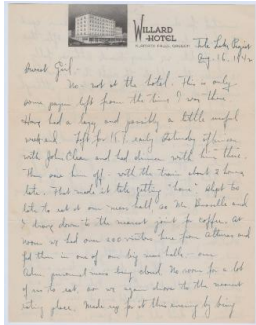 WILLARD
HOTEL
KLAMATH FALLS, OREGON
Tule Lake Project
Aug. 16, 1942
Dearest Girl,
No - not at the hotel. This is only
some paper left from the time I was there.
Have had a lazy and possibly a little useful
weekend. Left for K.F. early Saturday
with John and had dinner with him there.
Then saw him off - with the train about 2 hours
late. That made it late getting "home". Slept too
late to eat at our mess hall so Mr. and
I drove down to the nearest joint for coffee. At
noon we had some 200 visitors here from and
fed them in one of our big mess halls - our
Adm. personnel mess being closed. No room for a lot
of us to eat, so we again drove to the nearest
eating place. Made up for it this evening by being